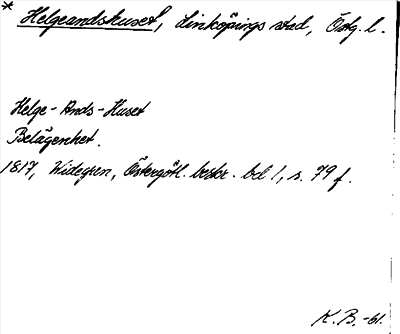 * Helgeandshuset, Linköpings stad, Östg. l.
Helge-Ands-Huset
Belägenhet.
1817, Widegren, Östergötl. beskr. bd 1, s. 79 f.
K.B.-61.